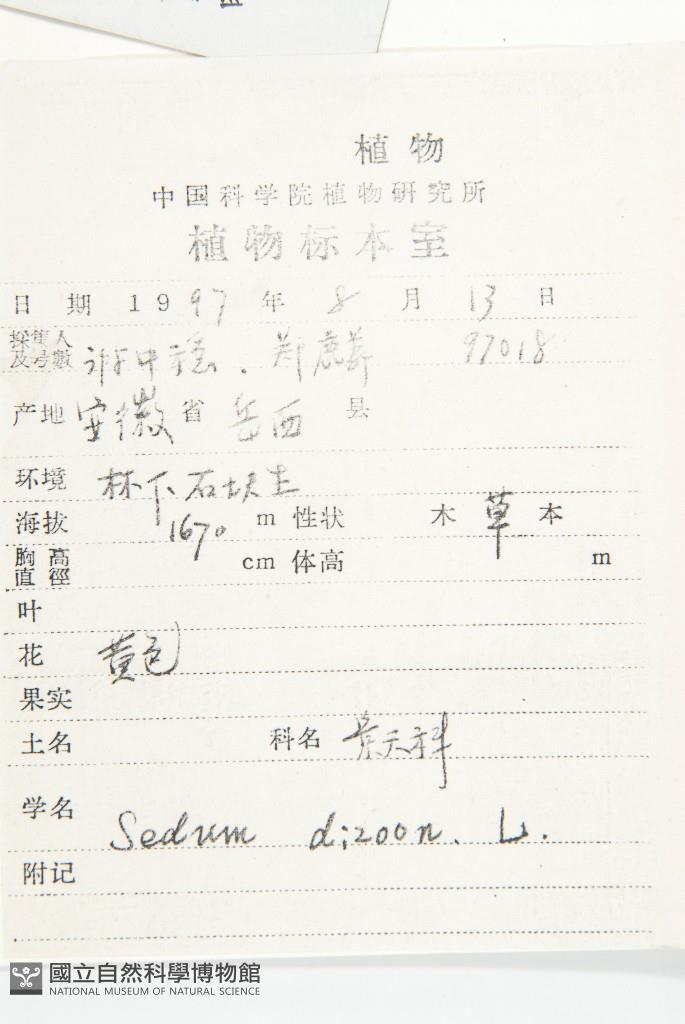 植物
中国科学院植物研究所
植物标本室
日期 1997年 8月 13日
採集人及号數 谢中稳、郑麗萍 97018
产地 安徽省 岳西 县
环境 林下石坎生
海拔 1670 m 性状 木 草 本
胸高直徑 cm 体高 m
叶
花 黄色
果实
土名 科名 景天科
学名 Sedum aizoon. L.
附记
國立自然科學博物館
NATIONAL MUSEUM OF NATURAL SCIENCE